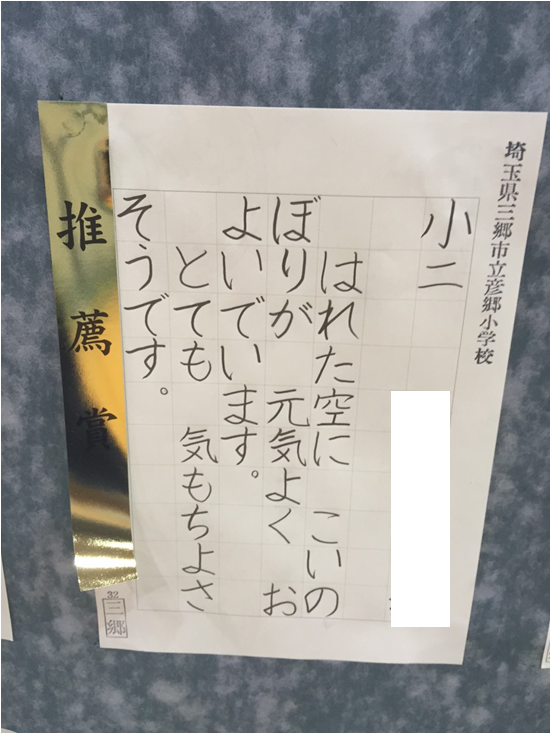 埼玉県三郷市立彦郷小学校
小二
はれた空に こいの
ぼりが 元気よく お
よいでいます。
とても 気もちよさ
そうです。
推薦賞
32
三郷